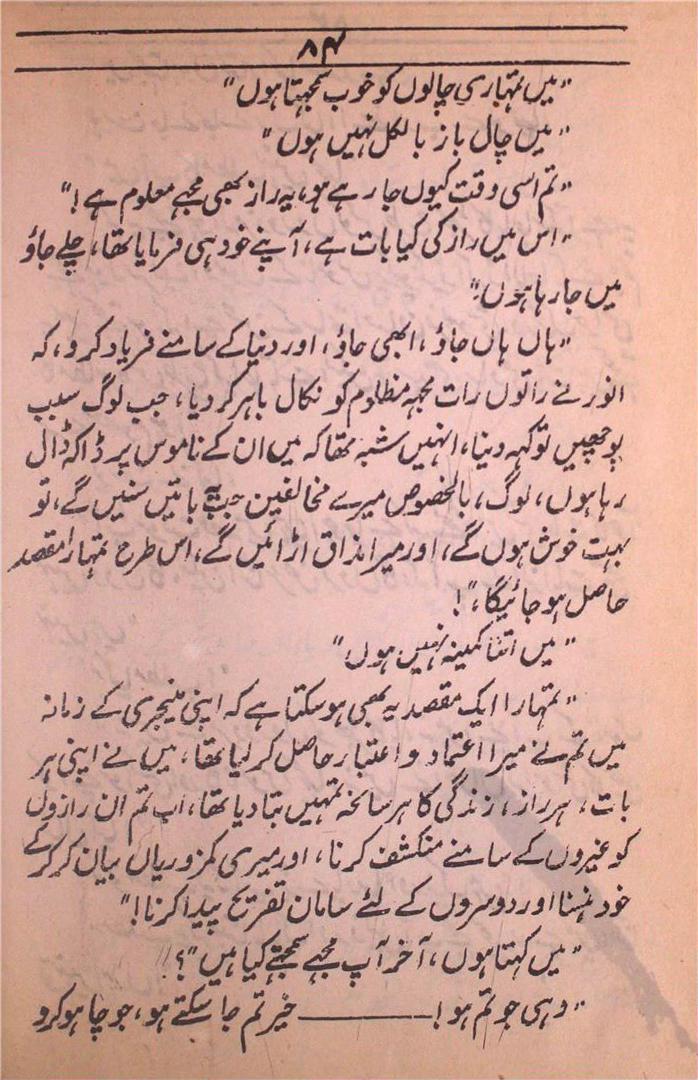 ۸۴
"میں تمہاری چالوں کو خوب سمجھتا ہوں"
"میں چال باز بالکل نہیں ہوں"
"تم اسی وقت کیوں جا رہے ہو، یہ راز بھی مجھے معلوم ہے!"
"اس میں راز کی کیا بات ہے، آپنے خود ہی فرمایا تھا، چلے جاؤ
میں جا رہا ہوں"
"ہاں ہاں جاؤ، ابھی جاؤ، اور دنیا کے سامنے فریاد کرو، کہ
انور نے راتوں رات مجھ مظلوم کو نکال باہر کر دیا، جب لوگ سبب
پوچھیں تو کہہ دینا، انہیں شبہ تھا کہ میں ان کے ناموس پر ڈاکہ ڈال
رہا ہوں، لوگ، بالخصوص میرے مخالفین جب یہ باتیں سنیں گے، تو
بہت خوش ہوں گے، اور میرا مذاق اڑائیں گے، اس طرح تمہارا مقصد
حاصل ہو جائیگا،"!
"میں اتنا کمینہ نہیں ہوں"
"تمہارا ایک مقصد یہ بھی ہو سکتا ہے کہ اپنی منیجری کے زمانہ
میں تم نے میرا اعتماد و اعتبار حاصل کر لیا تھا، میں نے اپنی ہر
بات، ہر راز، زندگی کا ہر سانحہ تمہیں بتا دیا تھا، اب تم ان رازوں
کو غیروں کے سامنے منکشف کرنا، اور میری کمزوریاں بیان کر کر کے
خود ہنسنا اور دوسروں کے لئے سامان تفریح پیدا کرنا!"
"میں کہتا ہوں، آخر آپ مجھے سمجھتے کیا ہیں"؟!
"وہی جو تم ہو! ——— خیر تم جا سکتے ہو، جو چاہو کرو